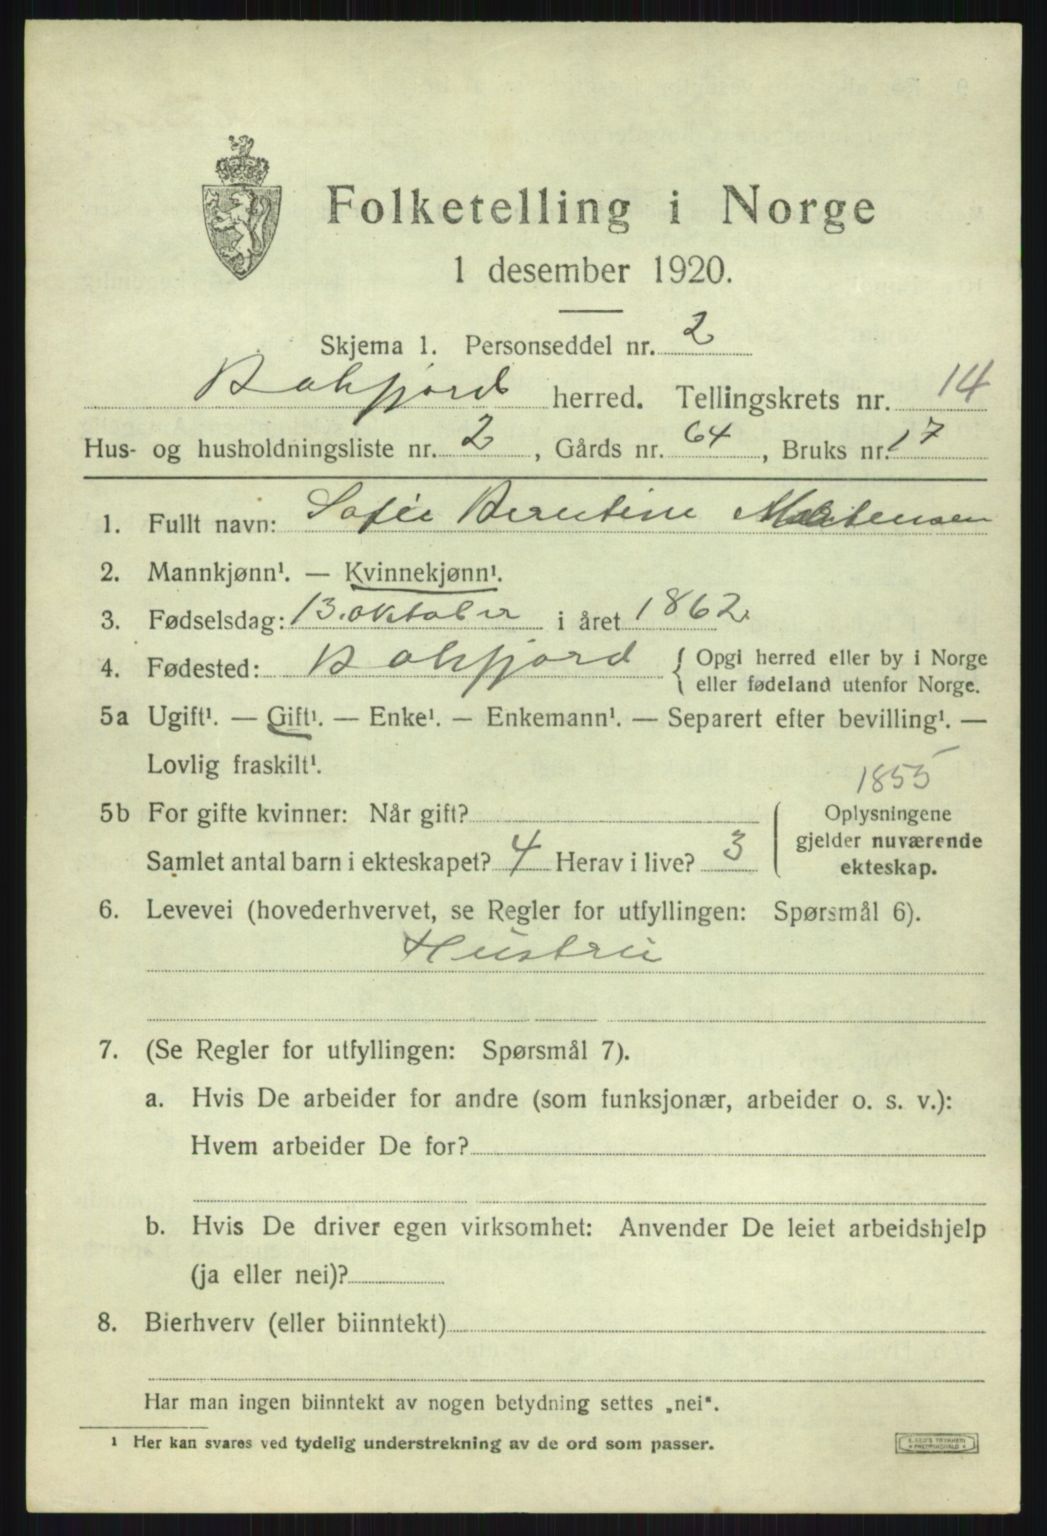 Folketelling i Norge
1 desember 1920.
Skjema 1. Personseddel nr. 2
Bahfjord herred. Tellingskrets nr. 14
Hus- og husholdningsliste nr. 2, Gårds nr. 64, Bruks nr. 17
1. Fullt navn: Sofie Berntine
2. Mannkjønn¹. — Kvinnekjønn¹.
3. Fødselsdag: 13. oktober i året 1862.
4. Fødested: Bahfjord { Opgi herred eller by i Norge
eller fødeland utenfor Norge.
5a Ugift¹. — Gift¹. — Enke¹. — Enkemann¹. — Separert efter bevilling¹. —
Lovlig fraskilt¹.
1855
5b For gifte kvinner: Når gift?
Samlet antal barn i ekteskapet? 4 Herav i live? 3
Oplysningene
gjelder nuværende
ekteskap.
6. Levevei (hovederhvervet, se Regler for utfyllingen: Spørsmål 6).
Hustru
7. (Se Regler for utfyllingen: Spørsmål 7).
a. Hvis De arbeider for andre (som funksjonær, arbeider o. s. v.):
Hvem arbeider De for?
b. Hvis De driver egen virksomhet: Anvender De leiet arbeidshjelp
(ja eller nei)?
8. Bierhverv (eller biinntekt)
Har man ingen biinntekt av nogen betydning settes „nei“.
¹ Her kan svares ved tydelig understrekning av de ord som passer.